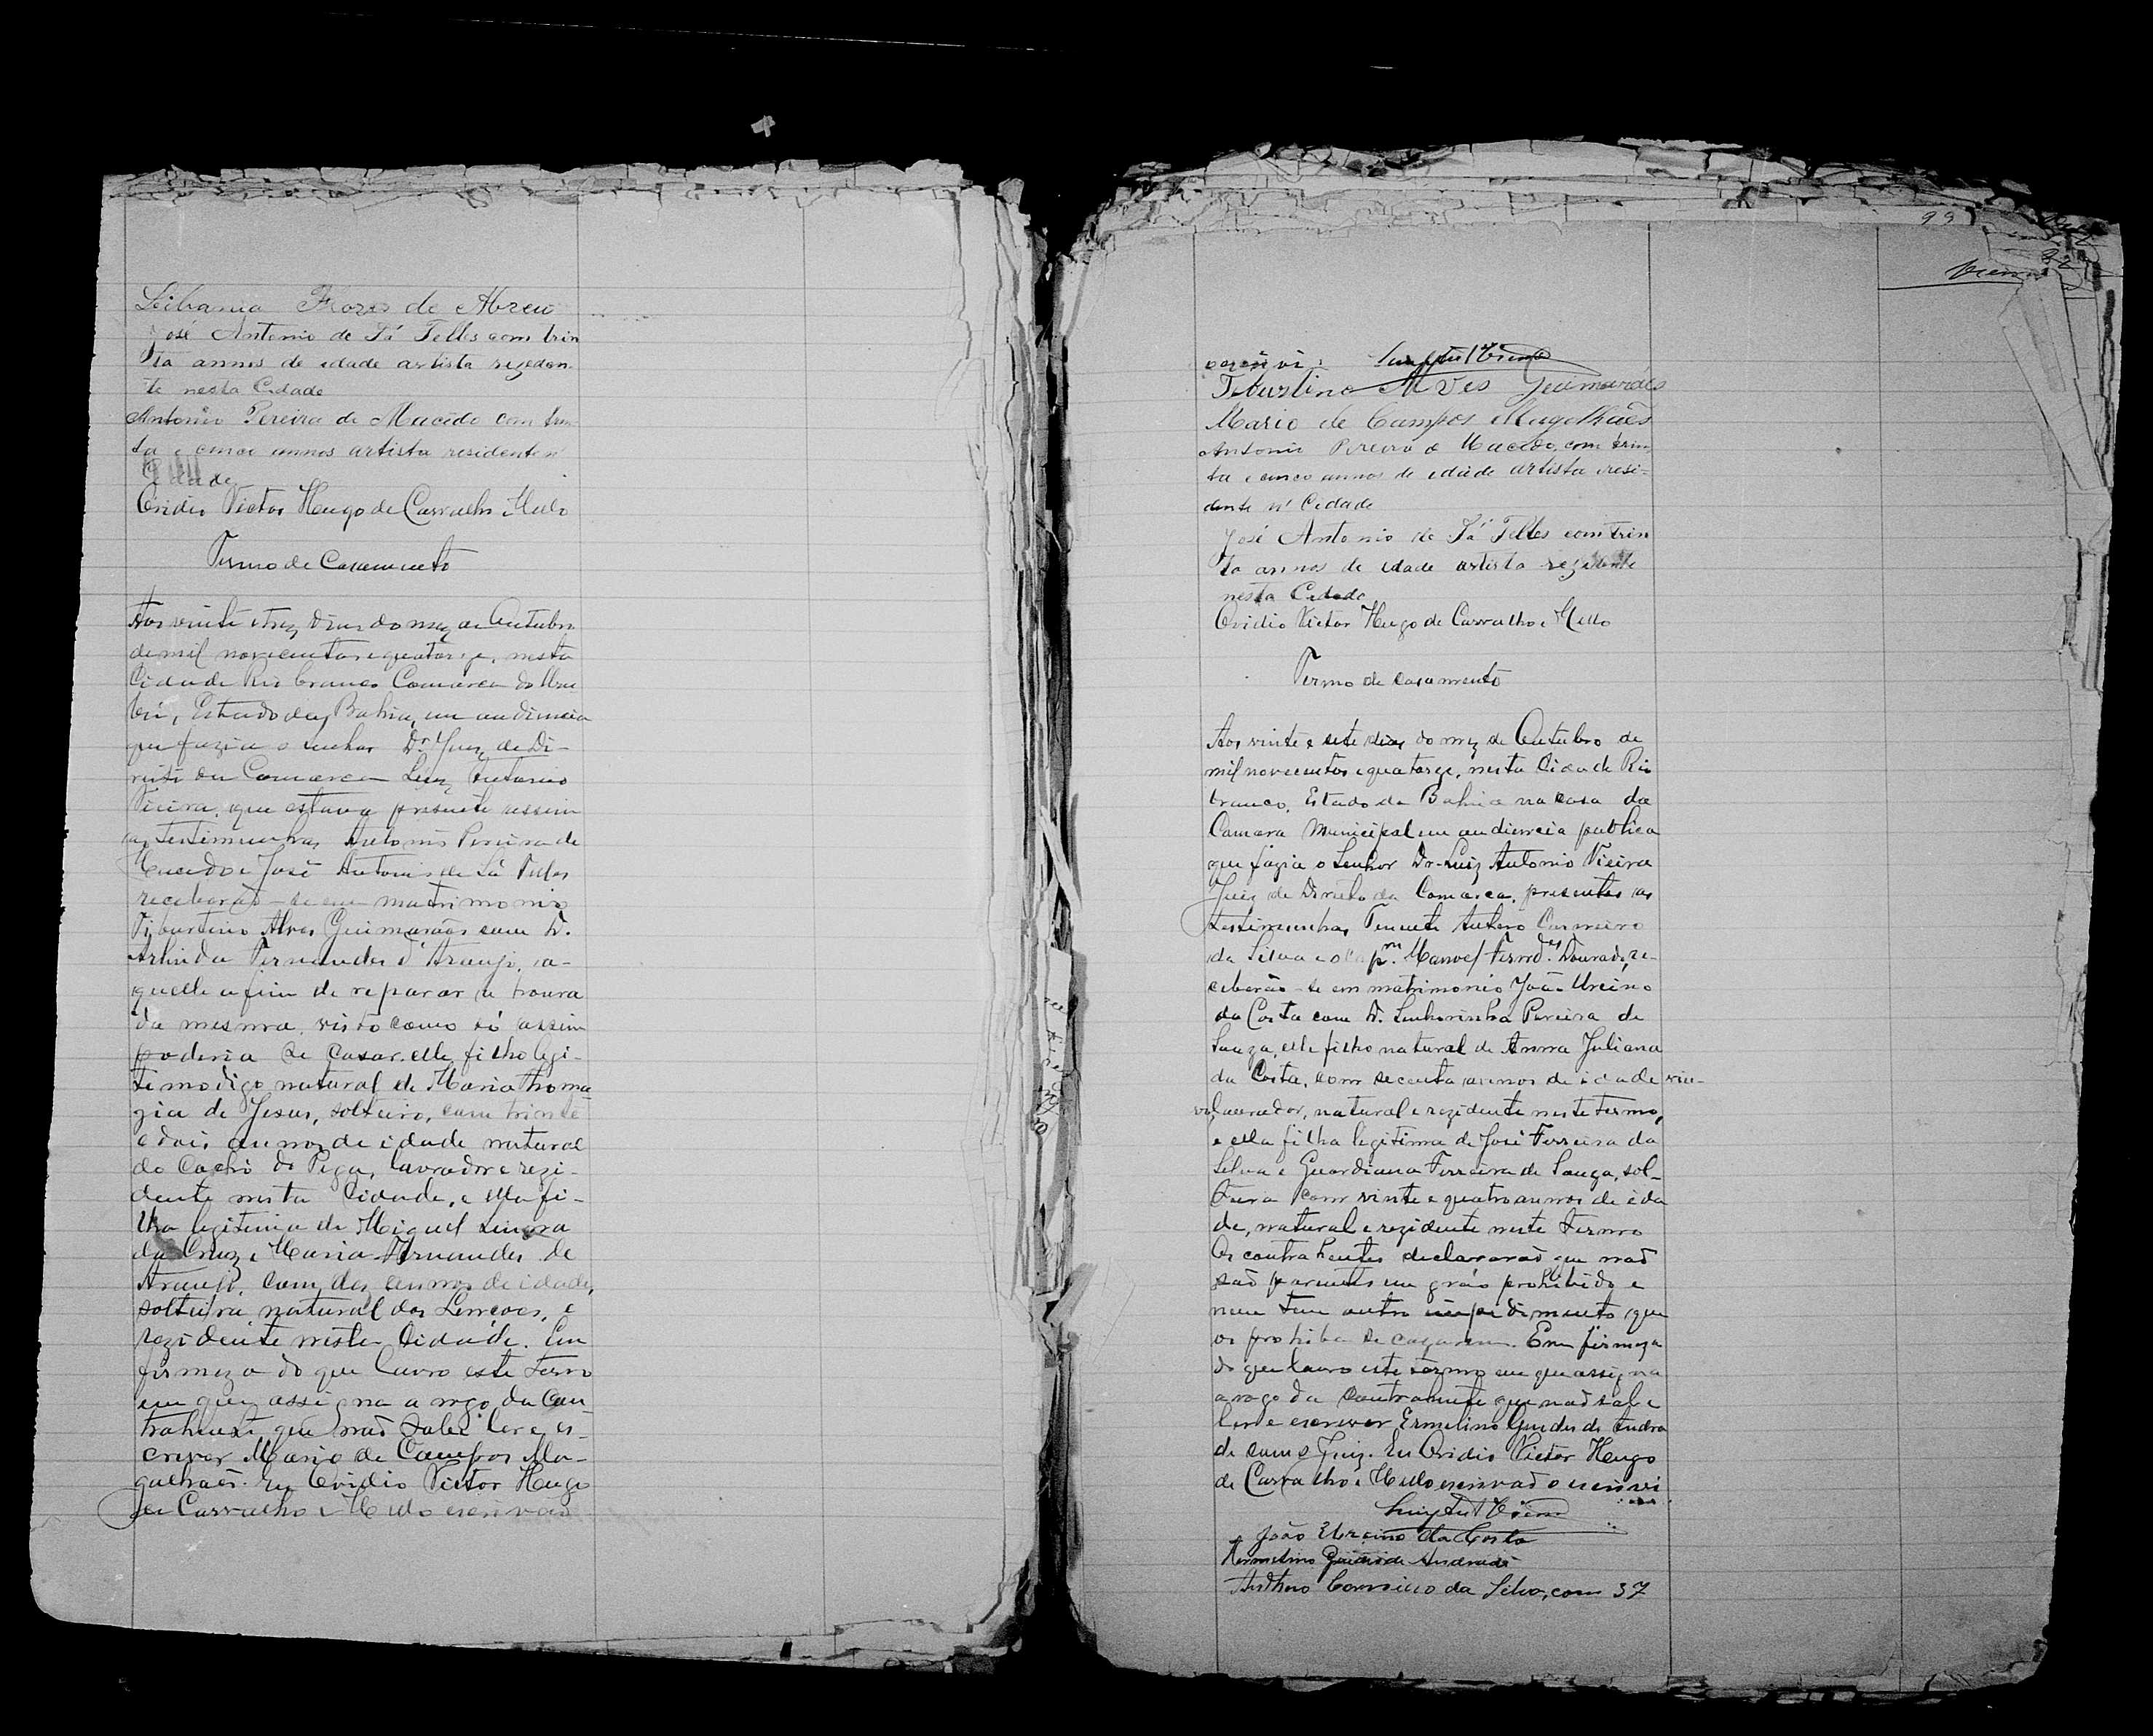 Leibania Flores de Abreu
José Antonio de Sá Telles com trin
ta annos de idade artista rezeden
te nesta Cidade
Antonio Pereira de Macêdo com trin
ta e cinco annos artista residente n'
Cidade
Ovidio Victor Hugo de Carvalho e Mello
Termo de Casamento
Aos vinte e trez dias do mez de Outubro
de mil novecentos e quatorze, nesta
Cidade Rio branco Comarca do Uru
bú, Estado da Bahia, em audiencia
que fazia o senhor Dr. Juiz de Di-
reito da Comarca Luiz Antonio
Vieira, que estava presente assim
as testimunhas Antonio Pereira de
Macedo e José Antonio de Sá Telles
receberão-se em matrimonio
Tiburtino Alves Guimarães com D.
Arlinda Fernandes d'Araujo, a-
quelle afim de reparar a honra
da mesma, visto como só assim
poderia se casar, elle filho legi-
temo digo natural de Maria Thoma
zia de Jesus, solteiro, com trinta
e dois annos de idade natural
do lavrador e rezi-
dente nesta Cidade, e ella fi-
lha legitima de Miguel
da Cruz e Maria Fernandes de
Araujo, com annos de idade,
solteira, natural dos Lençoes, e
rezidente nesta Cidade. Em
firmeza do que lavro este termo
em que assigna a rogo da con
trahente que não sabe ler e es-
crever Mario de Campos Ma-
galhães. Eu Ovidio Victor Hugo
de Carvalho e Mello escrivão
99
escrivi. Luiz Ant Vieira
Tiburtino Alves Guimarães
Mario de Campos Magalhães
Antonio Pereira de Macêdo, com trin
ta e cinco annos de edade artista resi-
dente n' Cidade
José Antonio de Sá Telles com trin
ta annos de idade artista rezidente
nesta Cidade
Ovidio Victor Hugo de Carvalho e Mello
Termo de casamento
Aos vinte e sete dias do mez de Outubro de
mil novecentos e quatorze, nesta Cidade Rio
branco, Estado da Bahia na casa da
Camara Municipal em audiencia publica
que fazia o Senhor Dr. Luiz Antonio Vieira
Juiz de Direito da Comarca, presentes as
testimunhas Tenente Anthero Carneiro
da Silva e o Capm. Manoel Fernds. Dourado, re-
ceberão-se em matrimonio João Urcino
da Costa com D. Senhorinha Pereira de
Souza, elle filho natural de Anna Juliana
da Costa, com secenta annos de idade viu-
vo, lavrador, natural e rezidente neste termo,
e ella filha legitima de José Ferreira da
Silva e Guardiana Ferreira de Souza, sol-
teira com vinte e quatro annos de ida
de, natural e rezidente neste termo
Os contrahentes declararão que não
são parentes em gráo prohibido e
nem tem outro impedimento que
os prohiba de cazarem. Em firmeza
do que lavro este termo em que assigna
a rogo da contrahente que não sabe
ler e escrever Ermelino Guedes de Andra
de com o Juiz. Eu Ovidio Victor Hugo
de Carvalho e Mello escrivão o escrivi
Luiz Ant Vieira
João Urcino da Costa
Hermelino Guedes de Andrade
Anthero Carneiro da Silva, com 37